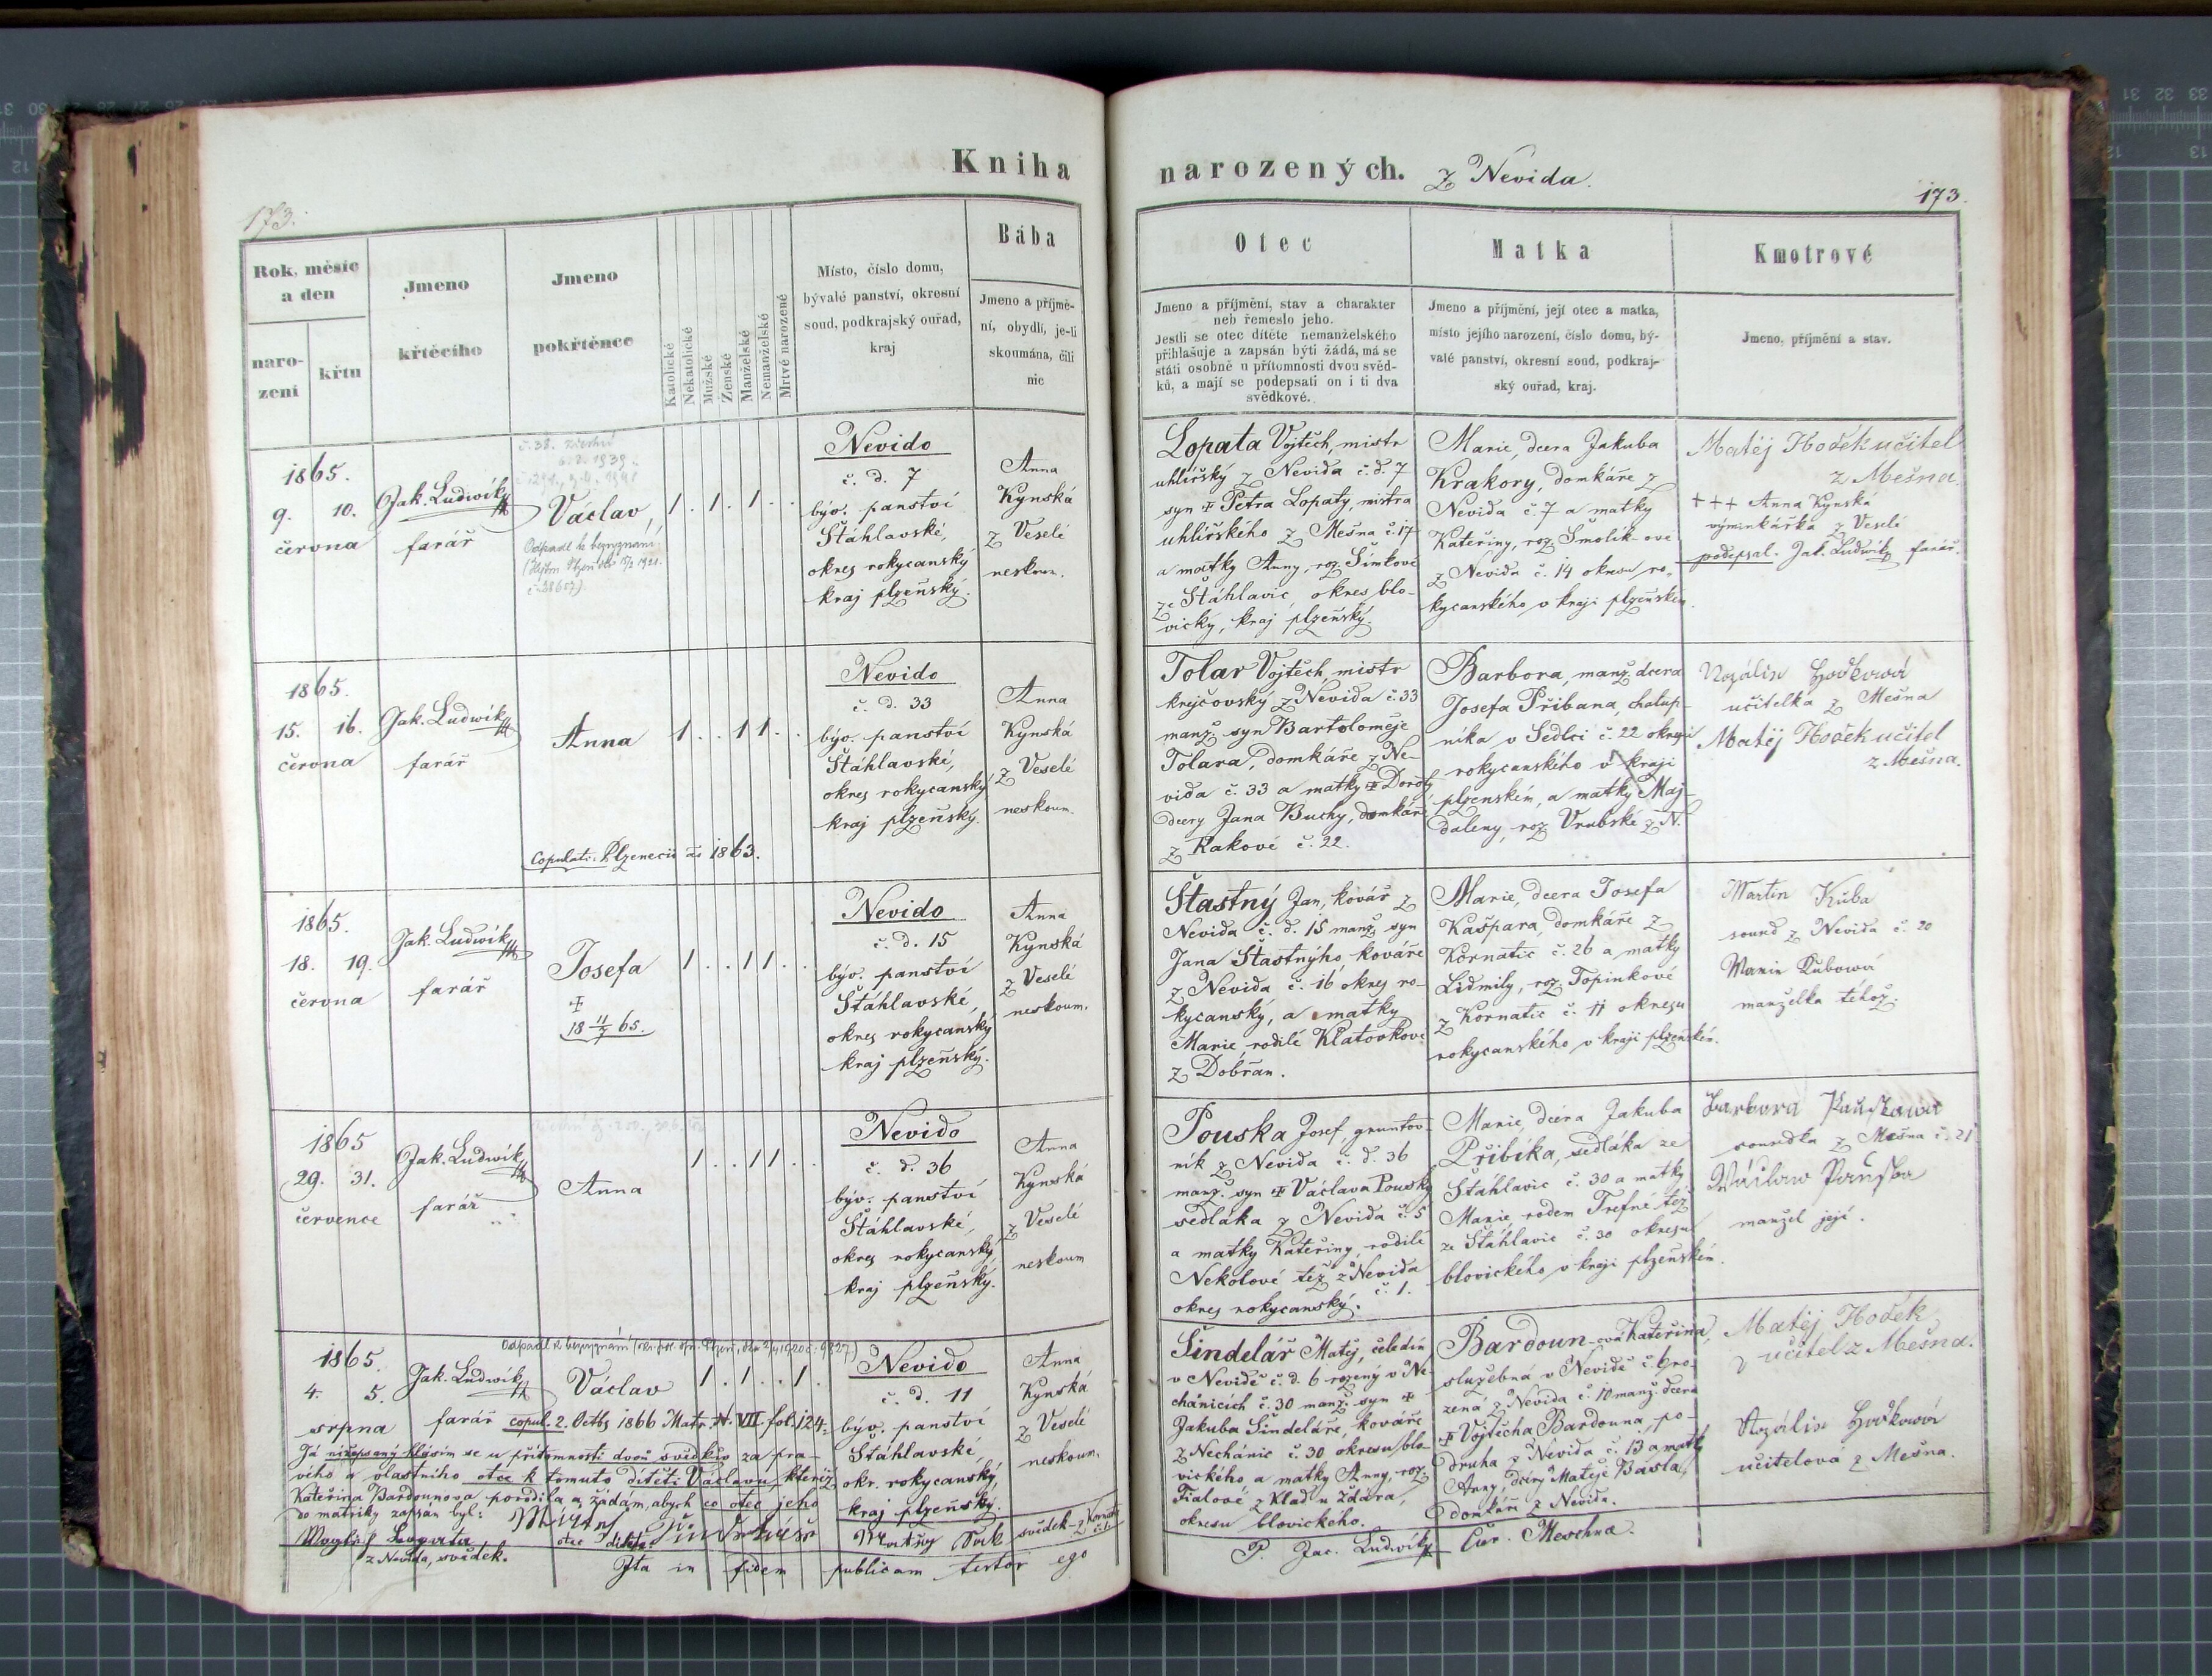 Kniha
narozených. z Nevida.
173.
173.
Rok, měsíc
a den
naro-
zení
křtu
Jmeno
křtěcího
Jmeno
pokřtěnce
Katolické
Nekatolické
Mužské
Ženské
Manželské
Nemanželské
Mrtvě narozené
Místo, číslo domu,
bývalé panství, okresní
soud, podkrajský ouřad,
kraj
Bába
Jmeno a příjmě-
ní, obydlí, je-li
skoumána, čili
nic
Otec
Jmeno a příjmění, stav a charakter
neb řemeslo jeho.
Jestli se otec dítěte nemanželského
přihlašuje a zapsán býti žádá, má se
státi osobně u přítomnosti dvou svěd-
ků, a mají se podepsati on i ti dva
svědkové.
Matka
Jmeno a příjmění, její otec a matka,
místo jejího narození, číslo domu, bý-
valé panství, okresní soud, podkraj-
ský ouřad, kraj.
Kmotrové
Jmeno, příjmění a stav.
1865.
9. 10.
června
Jak. Ludwík
farář
Václav
Odpadl k bezvyznání
1 . 1 . 1 . .
Nevido
č. d. 7
býv. panství
Štáhlavské,
okres rokycanský
kraj plzeňský.
Anna
Kynská
z Veselé
neskoum.
Lopata Vojtěch, mistr
uhlířský z Nevida č. d. 7
syn ‡ Petra Lopaty, mistra
uhlířského z Mešna č. 17
a matky Anny, roz. Šimkové
ze Štáhlavic, okres blo-
vický, kraj plzeňský.
Marie, dcera Jakuba
Krakory, domkáře z
Nevida č. 7 a matky
Kateřiny, roz. Smolík-ové
z Nevida č. 14 okresu ro-
kycanského v kraji plzeňském.
Matěj Hodek učitel
z Mešna.
+++ Anna Kynská
výminkářka z Veselé
podepsal. Jak. Ludwík farář.
1865.
15. 16.
června
Jak. Ludwík
farář
Anna
1 . . 1 1 . .
Copulati: Plzenecii ao 1863.
Nevido
č. d. 33
býv. panství
Štáhlavské,
okres rokycanský
kraj plzeňský.
Anna
Kynská
z Veselé
neskoum.
Tolar Vojtěch, mistr
krejčovský z Nevida č. 33
manž. syn Bartoloměje
Tolara, domkáře z Ne-
vida č. 33 a matky ‡ Doroty
dcery Jana Buchy, domkáře
z Rakové č. 22.
Barbora, manž. dcera
Josefa Přibana, chalup-
níka v Sedlci č. 22 okresu
rokycanského v kraji
plzenském, a matky Maj-
daleny, roz. Vrubské z N.
Rozálie Hodkowá
učitelka z Mešna
Matěj Hodek učitel
z Mešna.
1865.
18. 19.
června
Jak. Ludwík
farář
Josefa
‡
18 11/7 65.
1 . . 1 1 . .
Nevido
č. d. 15
býv. panství
Štáhlavské
okres rokycanský
kraj plzeňský.
Anna
Kynská
z Veselé
neskoum.
Štastný Jan, kovář z
Nevida č. d. 15 manž. syn
Jana Štastnýho kováře
z Nevida č. 16 okres ro-
kycanský, a matky
Marie rodilé Klatovkove
z Dobřan.
Marie, dcera Josefa
Kašpara, domkáře z
Kornatic č. 26 a matky
Lidmily, roz. Topinkové
z Kornatic č. 11 okresu
rokycanského v kraji plzeňském.
Martin Kuba
soused z Nevida č. 20
Marie Kubowá
manželka téhož.
1865
29. 31.
července
Jak. Ludwík
farář
Anna
1 . . 1 1 . .
Nevido
č. d. 36
býv. panství
Štáhlavské,
okres rokycanský,
kraj plzeňský.
Anna
Kynská
z Veselé
neskoum
Pouska Josef, gruntov-
ník z Nevida č. d. 36
manž. syn ‡ Václava Pousky
sedláka z Nevida č. 5
a matky Kateřiny, rodilé
Nekolové též z Nevida
č. 1.
okres rokycanský.
Marie, dcera Jakuba
Přibíka, sedláka ze
Štáhlavic č. 30 a matky
Marie rodem Trefné též
ze Štáhlavic č. 30 okresu
blovického v kraji plzeňském.
Barbora
sousedka z Mešna č. 21
manžel její.
1865.
4. 5.
srpna
Jak. Ludwík
farář
Odpadl k bezvyznání
Václav
1 . 1 . . 1 .
copul. 2. Octbs 1866 Matr. N. VII. fol. 124.
Já nížepsaný hlásím se u přítomnosti dvou svědků za pra-
vého a vlastního otce k tomuto dítěti Václavu, kteréž
Kateřina Bardounova porodila a žádám, abych co otec jeho
do matriky zapsán byl:
otec dítěte.
z Nevida, svědek.
svědek z Kornatic
Nevido
č. d. 11
býv. panství
Štáhlavské
okr. rokycanský,
kraj plzeňský.
Anna
Kynská
z Veselé
neskoum.
Šindelář Matěj, čeledín
v Nevidě č. d. 6 rozený v Ne-
chánicích č. 30 manž. syn ‡
Jakuba Šindeláře, kováře
z Nechánic č. 30 okresu blo-
vického a matky Anny, roz.
Fialové z Klad u Ždára,
okresu blovického.
Bardoun-ová Kateřina,
služebná v Nevidě č. 6 ro-
zená z Nevida č. 10 manž. dcera
‡ Vojtěcha Bardouna, po-
druha z Nevida č. 13 a matky
Anny, dcery Matěje Basla,
domkáře z Nevida.
Matěj Hodek
učitel z Mešna.
Rozálie Hodkowá
učitelová z Mešna.
Ita in fidem publicam testor ego
P. Jac. Ludwík Cur. Meschna.